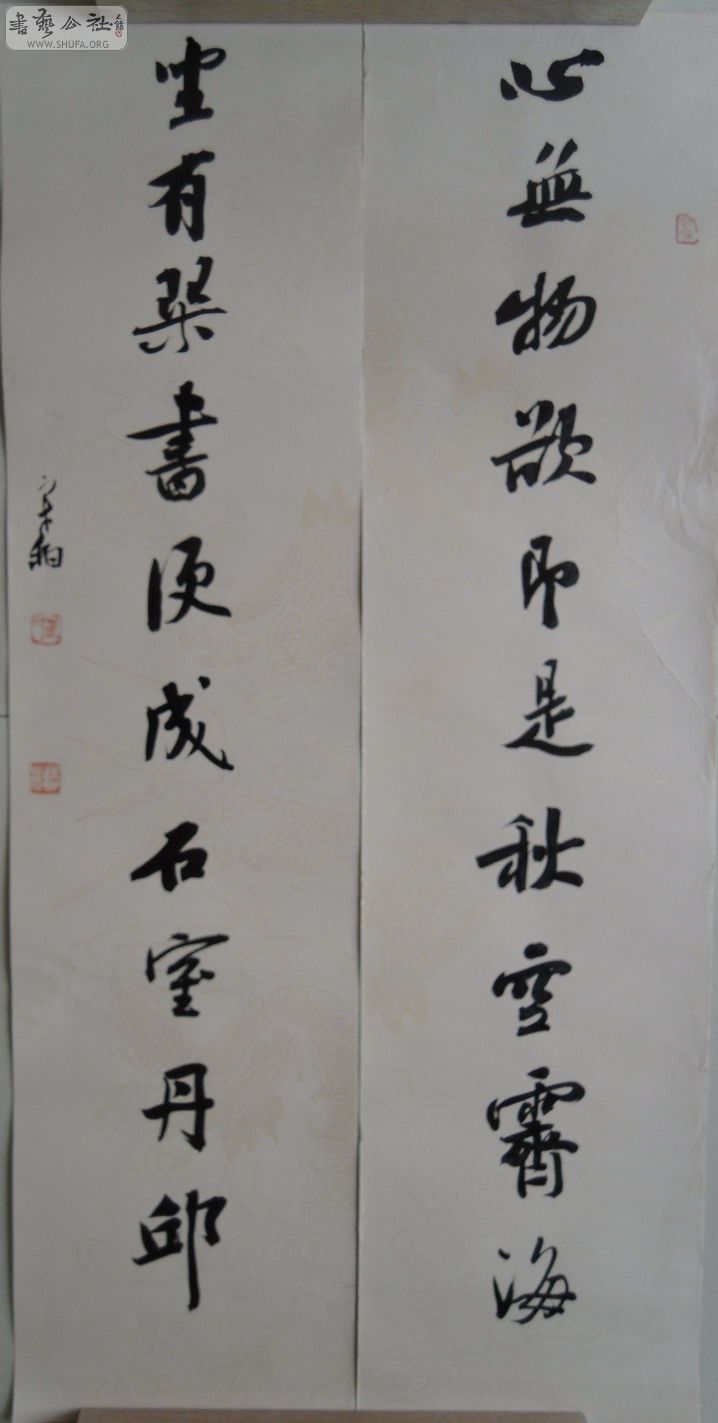 心無物欲即是秋空霽海
坐有琴書便成石室丹邱
書藝公社
WWW.SHUFA.ORG